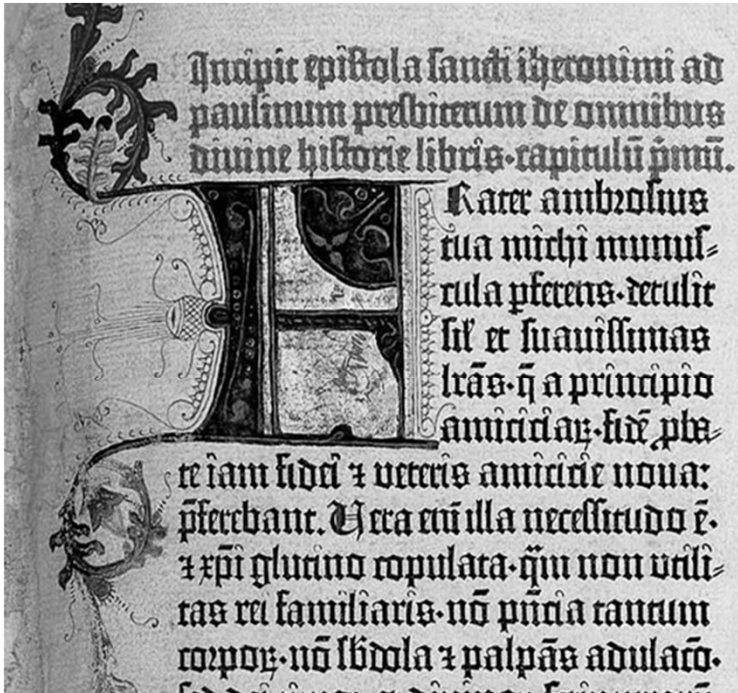 Incipit epistola sancti iheronimi ad
paulinum presbiterum de omnibus
divine historie libris·capitulū p̄mū.
FRater ambrosius
tua michi munus⸗
cula ꝑferens·detulit
sil’ et suavissimas
lr̄as·q̄ a principio
amiciciaꝝ·fidē ꝓba⸗
te iam fidei ⁊ veteris amicicie nova:
p̄ferebant. Vera em̄ illa necessitudo ē·
⁊ xp̄i glutino copulata·q̄m non utili⸗
tas rei familiaris·nō pn̄cia tantum
corpoꝝ·nō sb̄dola ⁊ palpās adulacō·